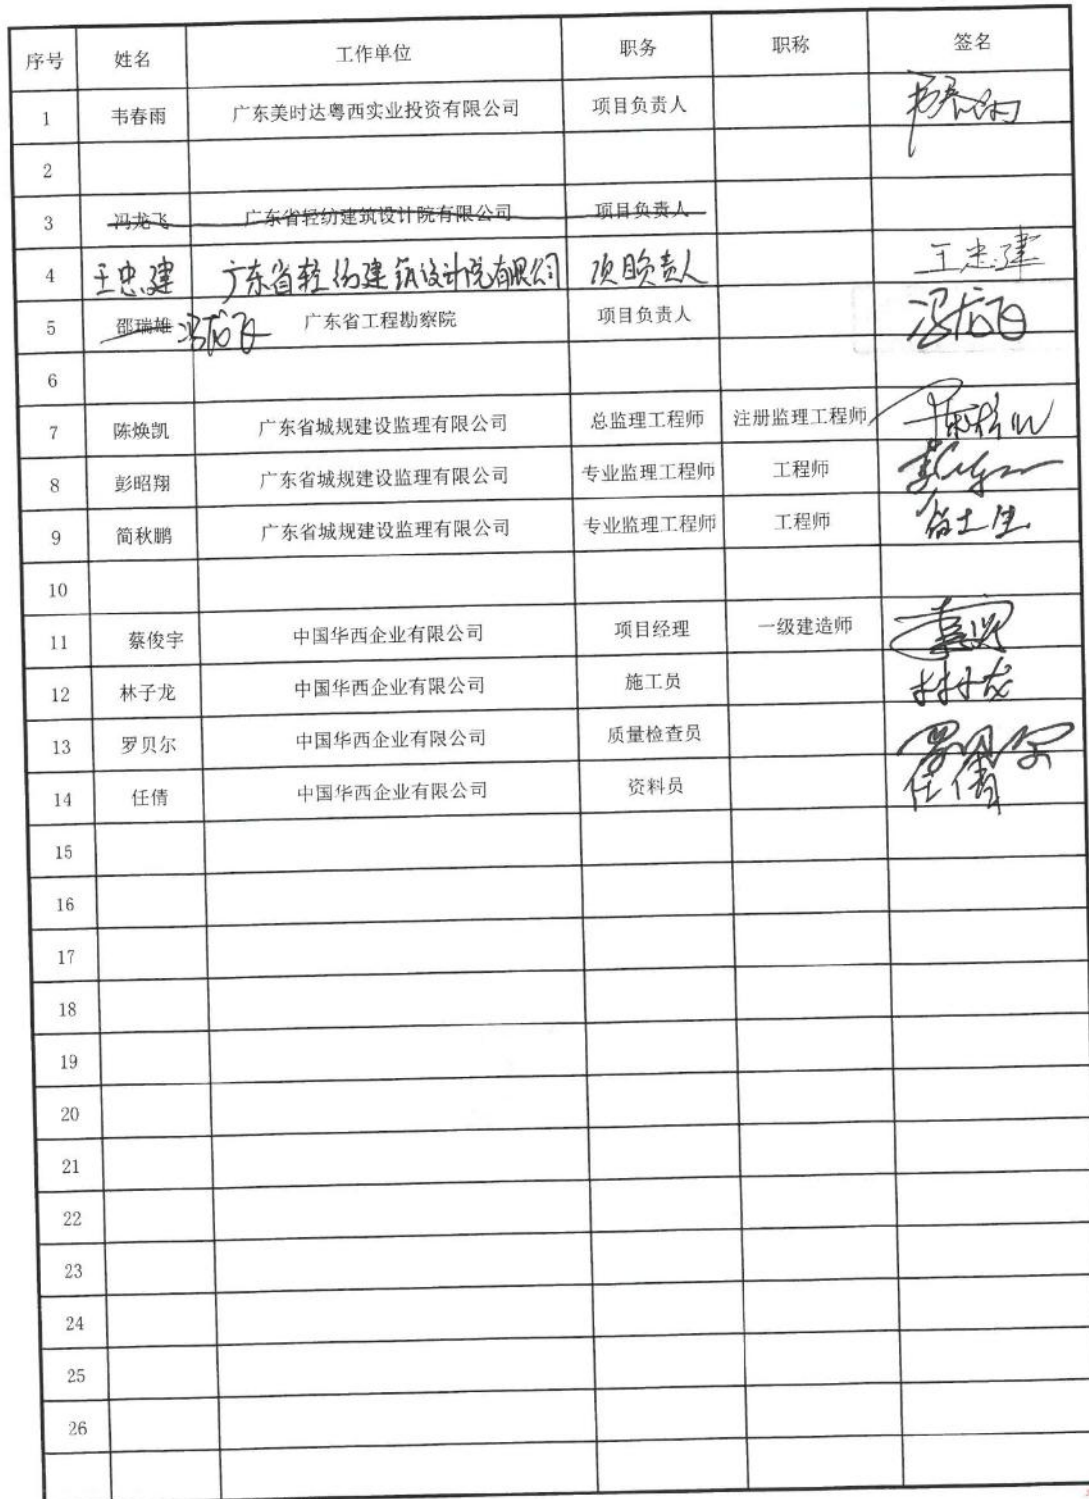 序号 姓名 工作单位 职务 职称 签名
1 韦春雨 广东美时达粤西实业投资有限公司 项目负责人 韦春雨
2
3 冯龙飞 广东省轻纺建筑设计院有限公司 项目负责人
4 王忠建 广东省轻纺建筑设计院有限公司 项目负责人 王忠建
5 邵瑞雄 冯龙飞 广东省工程勘察院 项目负责人 冯龙飞
6
7 陈焕凯 广东省城规建设监理有限公司 总监理工程师 注册监理工程师
8 彭昭翔 广东省城规建设监理有限公司 专业监理工程师 工程师
9 简秋鹏 广东省城规建设监理有限公司 专业监理工程师 工程师
10
11 蔡俊宇 中国华西企业有限公司 项目经理 一级建造师
12 林子龙 中国华西企业有限公司 施工员 林子龙
13 罗贝尔 中国华西企业有限公司 质量检查员 罗贝尔
14 任倩 中国华西企业有限公司 资料员 任倩
15
16
17
18
19
20
21
22
23
24
25
26